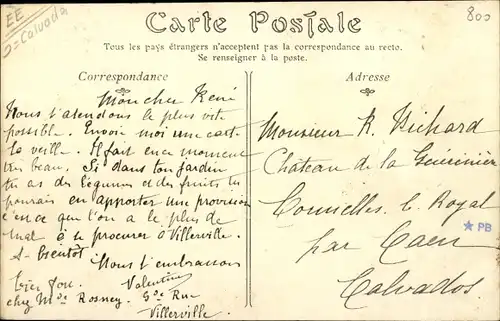 EE
D= Calvados
800
Carte Postale
Tous les pays étrangers n'acceptent pas la correspondance au recto.
Se renseigner à la poste.
Correspondance
Mon cher René
Nous t'attendons le plus vite
possible. Envoie moi une carte
la veille. Il fait en ce moment
très beau. Si dans ton jardin
tu as des légumes et des fruits tu
pourrais en apporter une provision
c'en ce que l'on a le plus de
mal à se procurer à Villerville.
A bientôt Nous t'embrassons
bien fou. Valentine
chez Mde Rosney. Gde Rue
Villerville.
Adresse
Monsieur R. Richard
Château de la
Cormelles le Royal
par Caen
Calvados.
PB